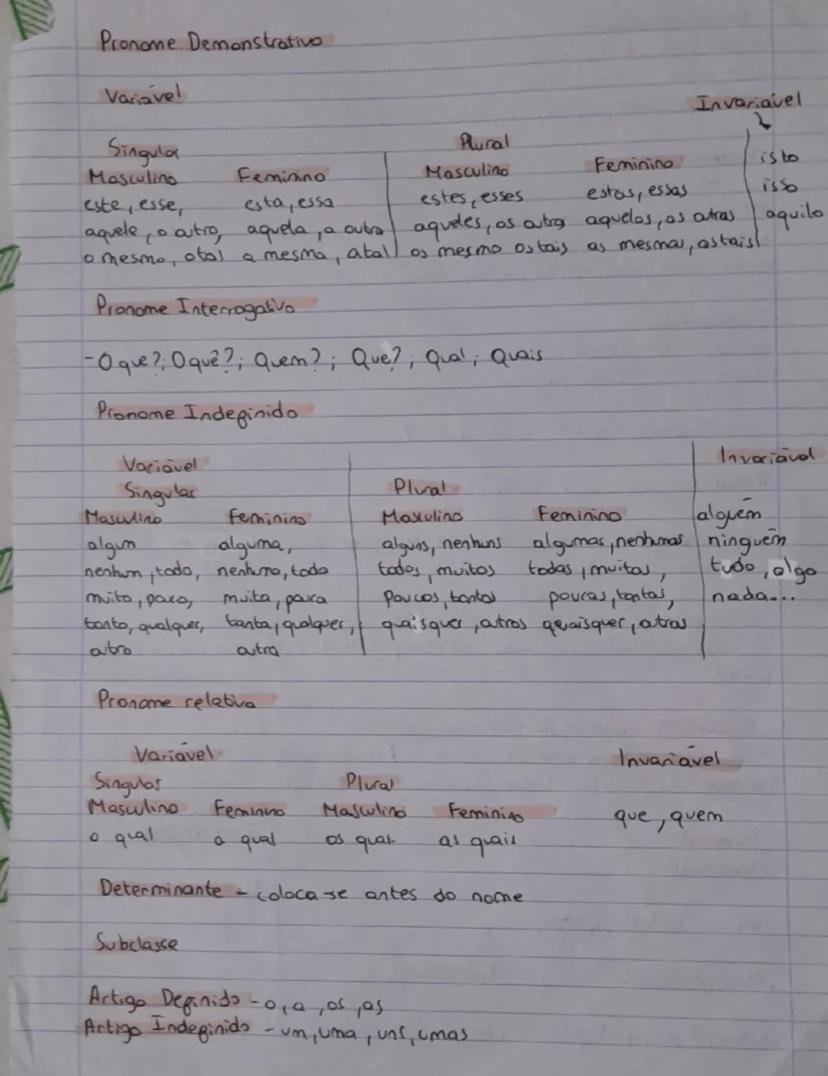 Pronome Demonstrativo
Variável
Invariável
Singular Plural
Masculino Feminino Masculino Feminino isto
este, esse, esta, essa estes, esses estas, essas isso
aquele, o outro, aquela, a outra aqueles, os outros aquelas, as outras aquilo
o mesmo, o tal a mesma, a tal os mesmo os tais as mesmas, as tais
Pronome Interrogativo
- O que?; O quê?; Quem?; Que?; Qual; Quais
Pronome Indefinido
Variável Invariável
Singular Plural
Masculino Feminino Masculino Feminino alguém
algum alguma, alguns, nenhuns algumas, nenhumas ninguém
nenhum, todo, nenhuma, toda todos, muitos todas, muitas, tudo, algo
muito, pouco, muita, pouca poucos, tantos poucas, tantas, nada...
tanto, qualquer, tanta, qualquer, quaisquer, outros quaisquer, outras
outro outra
Pronome relativo
Variável Invariável
Singular Plural
Masculino Feminino Masculino Feminino que, quem
o qual a qual os quais as quais
Determinante - coloca-se antes do nome
Subclasse
Artigo Definido - o, a, os, as
Artigo Indefinido - um, uma, uns, umas